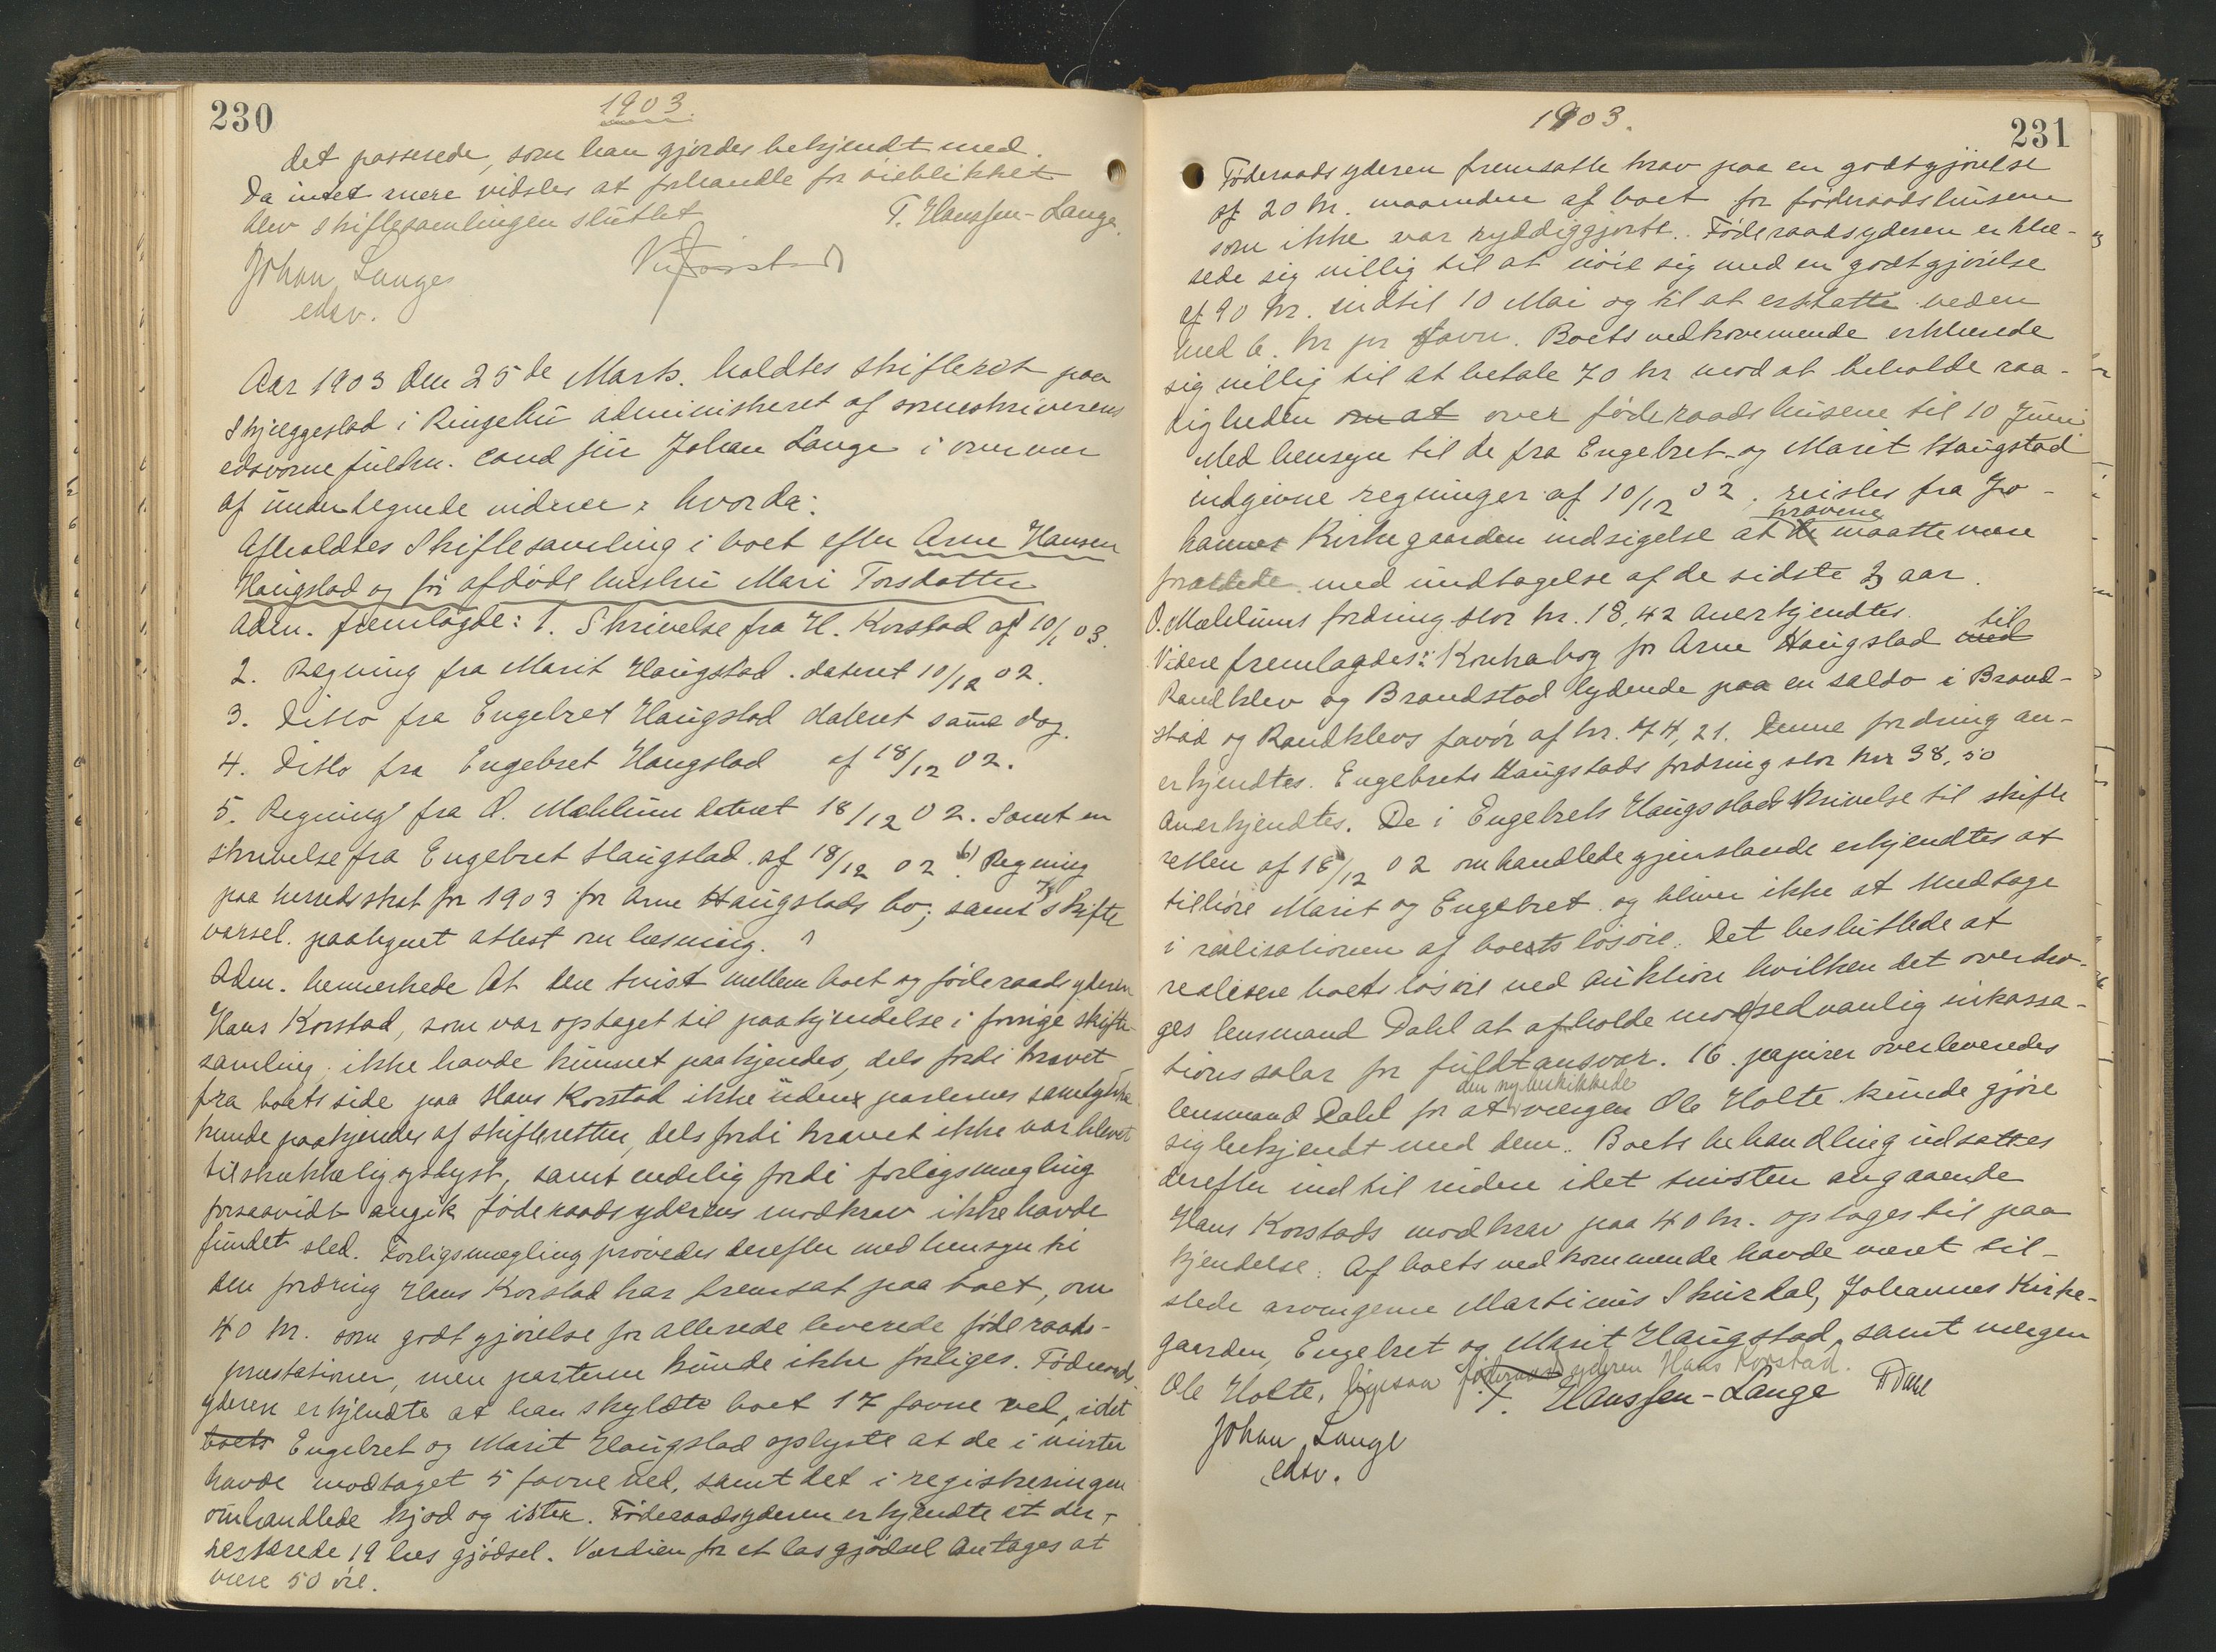 230
1903.
det passerede, som han gjordes bekjendt med.
Da intet mere vidstes at forhandle for öieblikket
blev skiftesamlingen sluttet
T. Hanssen-Lange.
Johan Lange
edsv.
Aar 1903 den 25de Marts. holdtes skifteret paa
Skjæggestad i Ringebu administreret af sorenskriverens
edsvorne fuldm. cand jur Johan Lange i overvær
af undertegnede vidner; hvorda:
Afholdtes Skiftesamling i boet efter Arne Hansen
Haugstad og før afdöde hustru Mari Torsdatter
Adm. fremlagde: 1. Skrivelse fra H. Korstad af 10/1 03.
2. Regning fra Marit Haugstad. dateret 10/12 02.
3. Ditto fra Engebret Haugstad dateret samme dag.
4. Ditto fra Engebret Haugstad af 18/12 02.
5. Regning fra O. Mæhlum dateret 18/12 02. Samt en
skrivelse fra Engebret Haugstad. af 18/12 02. 6) Regning
paa herredsskat for 1903 for Arne Haugstads bo; samt 7) skifte
varsel. paategnet attest om læsning.
Adm. bemerkede At den tvist mellem boet og föderaadsyderen
Hans Korstad, som var optaget til paakjendelse i forrige skifte-
samling. ikke havde kunnet paakjendes, dels fordi kravet
fra boets side paa Hans Korstad ikke uden parternes samtykke
kunde paakjendes af skifteretten, dels fordi kravet ikke var blevet
tilstrækkelig oplyst, samt endelig fordi forligsmægling
forsaavidt angik föderaadsyderens modkrav ikke havde
fundet sted. Forligsmægling prövedes derefter med hensyn til
den fordring Hans Korstad har fremsat paa boet, om
40 kr. som godtgjörelse for allerede leverede föderaads-
præstationer, men parterne kunde ikke forliges. Föderaads
yderen erkjendte at han skyldte boet 17 favne ved, idet
boets Engebret og Marit Haugstad oplyste at de i vinter
havde modtaget 5 favne ved, samt det i registreringen
omhandlede kjöd og ister. Föderaadsyderen erkjendte at der
resterede 19 læs gjödsel. Værdien for et læs gjödsel Antages at
være 50 öre.
1903.
231
Föderaadsyderen fremsatte krav paa en godtgjörelse
af 20 kr. maaneden af boet for föderaadshusene
som ikke var ryddiggjorte. Föderaadsyderen erklæ-
rede sig villig til at nöie sig med en godtgjörelse
af 90 kr. indtil 10 Mai og til at erstatte veden
med 6. kr pr favn. Boets vedkommende erklærede
sig villig til at betale 70 kr mod at beholde raa-
digheden om at over föderaadshusene til 10 Juni
Med hensyn til de fra Engebret og Marit Haugstad
indgivne regninger af 10/12 02. reistes fra Jo-
hannes Kirkegaarden indsigelse at de kravene maatte være
forældede med undtagelse af de sidste 3 aar.
O. Mæhlums fordring stor kr. 18,42 anerkjendtes.
Videre fremlagdes: Kontrabog for Arne Haugstad med til
Randklev og Brandstad lydende paa en saldo i Brand-
stad og Randklevs favör af kr. 44,21. Denne fordring an-
erkjendtes. Engebrets Haugstads fordring stor kr 38,50
Anerkjendtes. De i Engebrets Haugstads skrivelse til skifte
retten af 18/12 02 omhandlede gjenstande erkjendtes at
tilhöre Marit og Engebret og bliver ikke at medtage
i realisationen af boets lösöre. Det besluttede at
realisere boets lösöre ved auktion hvilken det overdra-
ges lensmand Dahl at afholde mod sedvanlig inkassa-
tionssalær for fuldt ansvar. 16. papirer overleveredes
lensmand Dahl for at den nybeskikkede værgen Ole Holte kunde gjöre
sig bekjendt med dem. Boets behandling udsattes
derefter indtil videre idet tvisten angaaende
Hans Korstads modkrav paa 40 kr. optages til paa
kjendelse. Af boets vedkommende havde været til-
stede arvingerne Martinus Skurdal, Johannes Kirke-
gaarden, Engebret og Marit Haugstad, samt værgen
Ole Holte, ligesaa föderaadsyderen Hans Korstad.
T. Hanssen-Lange
Johan Lange
edsv.